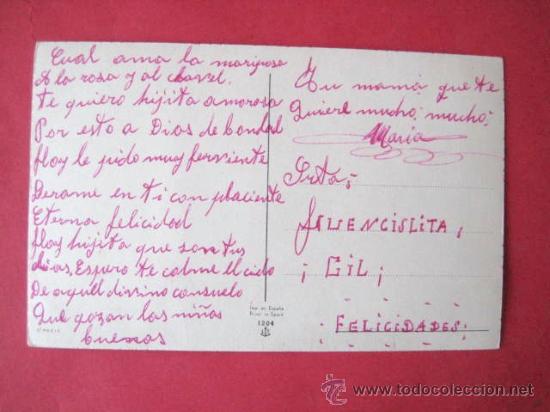 Cual ama la mariposa
A la rosa y al clavel.
te quiero hijita amorosa
Por esto a Dios de bondad
Hoy le pido muy ferviente
Derame en ti con placiente
Eterna felicidad
Hoy hijita que son tus
dias, Espero te colme el cielo
De aquel divino consuelo
Que gozan las niñas
buenas
Tu mamá que te
Quiere mucho, mucho,
María
Srta;
FUENCISLITA,
¡ GIL ¡
¡ FELICIDADES ¡
Imp. en España
Print. in Spain
1204
todocoleccion
www.todocoleccion.net